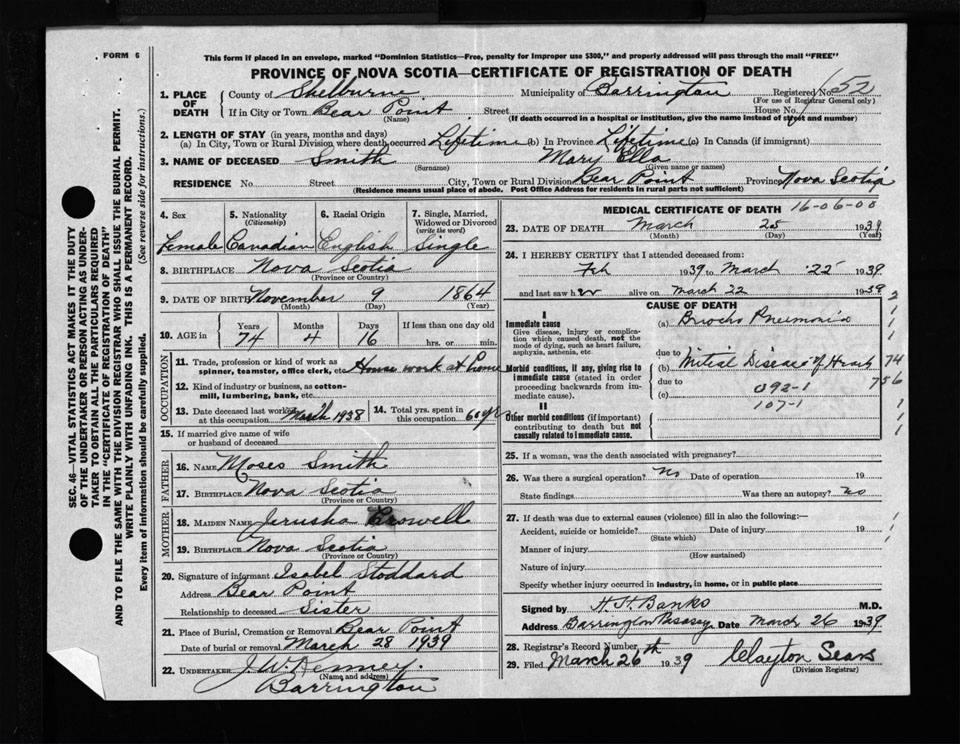 FORM 6
This form if placed in an envelope, marked "Dominion Statistics—Free, penalty for improper use $300," and properly addressed will pass through the mail "FREE"
PROVINCE OF NOVA SCOTIA—CERTIFICATE OF REGISTRATION OF DEATH
1. PLACE OF DEATH
County of Shelburne Municipality of Barrington Registered No. 152
(For use of Registrar General only)
If in City or Town Bear Point Street House No.
(Name) (If death occurred in a hospital or institution, give the name instead of street and number)
2. LENGTH OF STAY (in years, months and days)
(a) In City, Town or Rural Division where death occurred Lifetime (b) In Province Lifetime (c) In Canada (if immigrant)
3. NAME OF DECEASED Smith Mary Ella
(Surname) (Given name or names)
RESIDENCE No. Street City, Town or Rural Division Bear Point Province Nova Scotia
(Residence means usual place of abode. Post Office Address for residents in rural parts not sufficient)
4. Sex 5. Nationality (Citizenship) 6. Racial Origin 7. Single, Married, Widowed or Divorced (write the word)
Female Canadian English Single
8. BIRTHPLACE Nova Scotia
(Province or Country)
9. DATE OF BIRTH November 9 1864
(Month) (Day) (Year)
10. AGE in Years Months Days If less than one day
74 4 16 hrs. or min.
OCCUPATION
11. Trade, profession or kind of work as spinner, teamster, office clerk, etc. House work at home
12. Kind of industry or business, as cotton-mill, lumbering, bank, etc.
13. Date deceased last worked at this occupation March 1938 14. Total yrs. spent in this occupation 60 yr
15. If married give name of wife or husband of deceased
FATHER
16. NAME Moses Smith
17. BIRTHPLACE Nova Scotia
(Province or Country)
MOTHER
18. MAIDEN NAME Jerusha Crowell
19. BIRTHPLACE Nova Scotia
(Province or Country)
20. Signature of informant Isabel Stoddard
Address Bear Point
Relationship to deceased Sister
21. Place of Burial, Cremation or Removal Bear Point
Date of burial or removal March 28 1939
22. UNDERTAKER J. W. Kenney.
(Name and address)
Barrington
MEDICAL CERTIFICATE OF DEATH 16-06-00
23. DATE OF DEATH March 25 1939
(Month) (Day) (Year)
24. I HEREBY CERTIFY that I attended deceased from:
Feb 1939 to March 22 1939
and last saw her alive on March 22 1939
CAUSE OF DEATH
I
Immediate cause
Give disease, injury or complication which caused death, not the mode of dying, such as heart failure, asphyxia, asthenia, etc.
(a) Broncho Pneumonia
due to
Morbid conditions, if any, giving rise to immediate cause (stated in order proceeding backwards from immediate cause).
(b) Mitral Disease of Heart 74
due to 092-1 756
(c) 107-1
II
Other morbid conditions (if important) contributing to death but not causally related to immediate cause.
25. If a woman, was the death associated with pregnancy?
26. Was there a surgical operation? No Date of operation 19
State findings Was there an autopsy? No
27. If death was due to external causes (violence) fill in also the following:—
Accident, suicide or homicide? Date of injury 19
(State which)
Manner of injury
(How sustained)
Nature of injury
Specify whether injury occurred in industry, in home, or in public place
Signed by H. H. Banks M.D.
Address Barrington Passage Date March 26 1939
28. Registrar's Record Number
29. Filed March 26th 1939 Clayton Sears
(Division Registrar)
SEC. 46—VITAL STATISTICS ACT MAKES IT THE DUTY
OF THE UNDERTAKER OR PERSON ACTING AS UNDER-
TAKER TO OBTAIN ALL THE PARTICULARS REQUIRED
IN THE "CERTIFICATE OF REGISTRATION OF DEATH"
AND TO FILE THE SAME WITH THE DIVISION REGISTRAR WHO SHALL ISSUE THE BURIAL PERMIT.
WRITE PLAINLY WITH UNFADING INK. THIS IS A PERMANENT RECORD.
Every item of information should be carefully supplied. (See reverse side for instructions.)